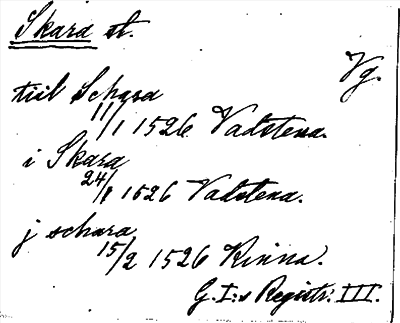 Skara st.
Vg.
till Schara
11/1 1526 Vadstena.
i Skara
24/1 1526 Vadstena.
j schara
15/2 1526 Kinna.
G. I:s Registr. III.